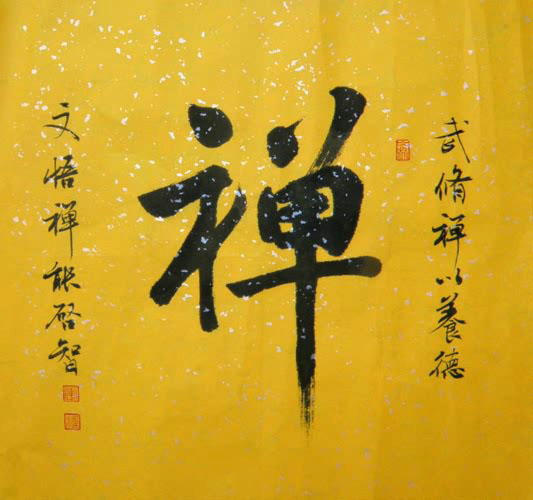 武脩禅以養德
禅
文悟禅能啓智